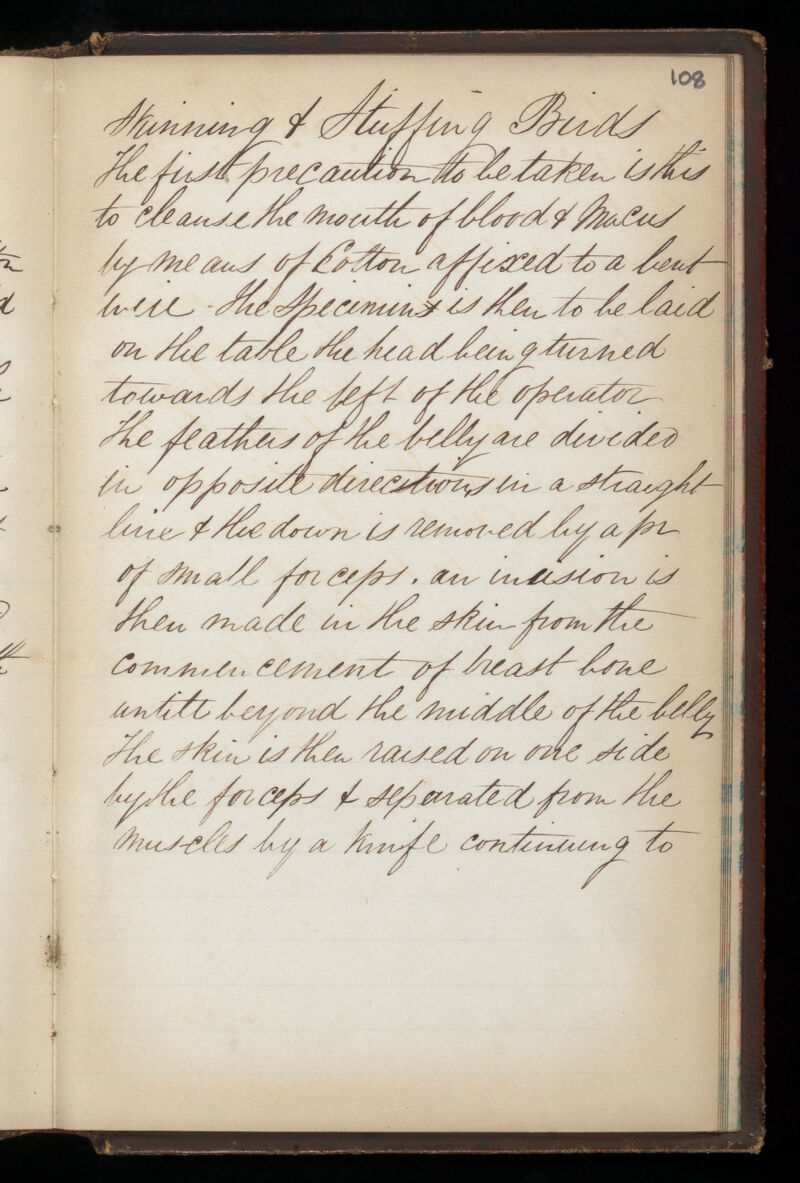 108
Skinning & Stuffing Birds
The first precaution to be taken is this
to cleanse the mouth of blood & Mucus
by means of Cotton affixed to a bent
wire - the Specimins is then to be laid
on the table the head being turned
towards the left of the operator
The feathers of the belly are divided
in opposite directions in a straight
line & the down is removed by a pr
of small forceps. an incision is
then made in the skin from the
commencement of breast bone
untill beyond the middle of the belly
The skin is then raised on one side
by the forceps & separated from the
muscles by a knife continuing to